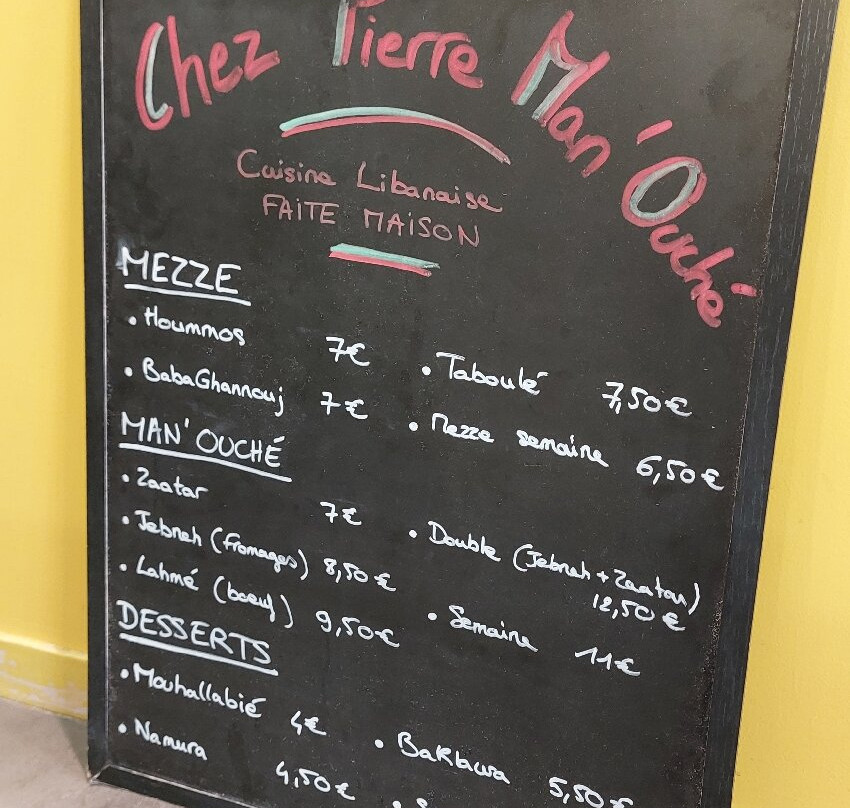 Chez Pierre Man'Ouché
Cuisine Libanaise
FAITE MAISON
MEZZE
• Hoummos 7€
• BabaGhannouj 7€
• Taboulé 7,50€
• Mezze semaine 6,50€
MAN'OUCHÉ
• Zaatar 7€
• Jebneh (fromages) 8,50€
• Lahmé (boeuf) 9,50€
• Double (Jebneh + Zaatar)
12,50€
• Semaine 11€
DESSERTS
• Mouhallabié 4€
• Namura 4,50€
• Baklawa 5,50€